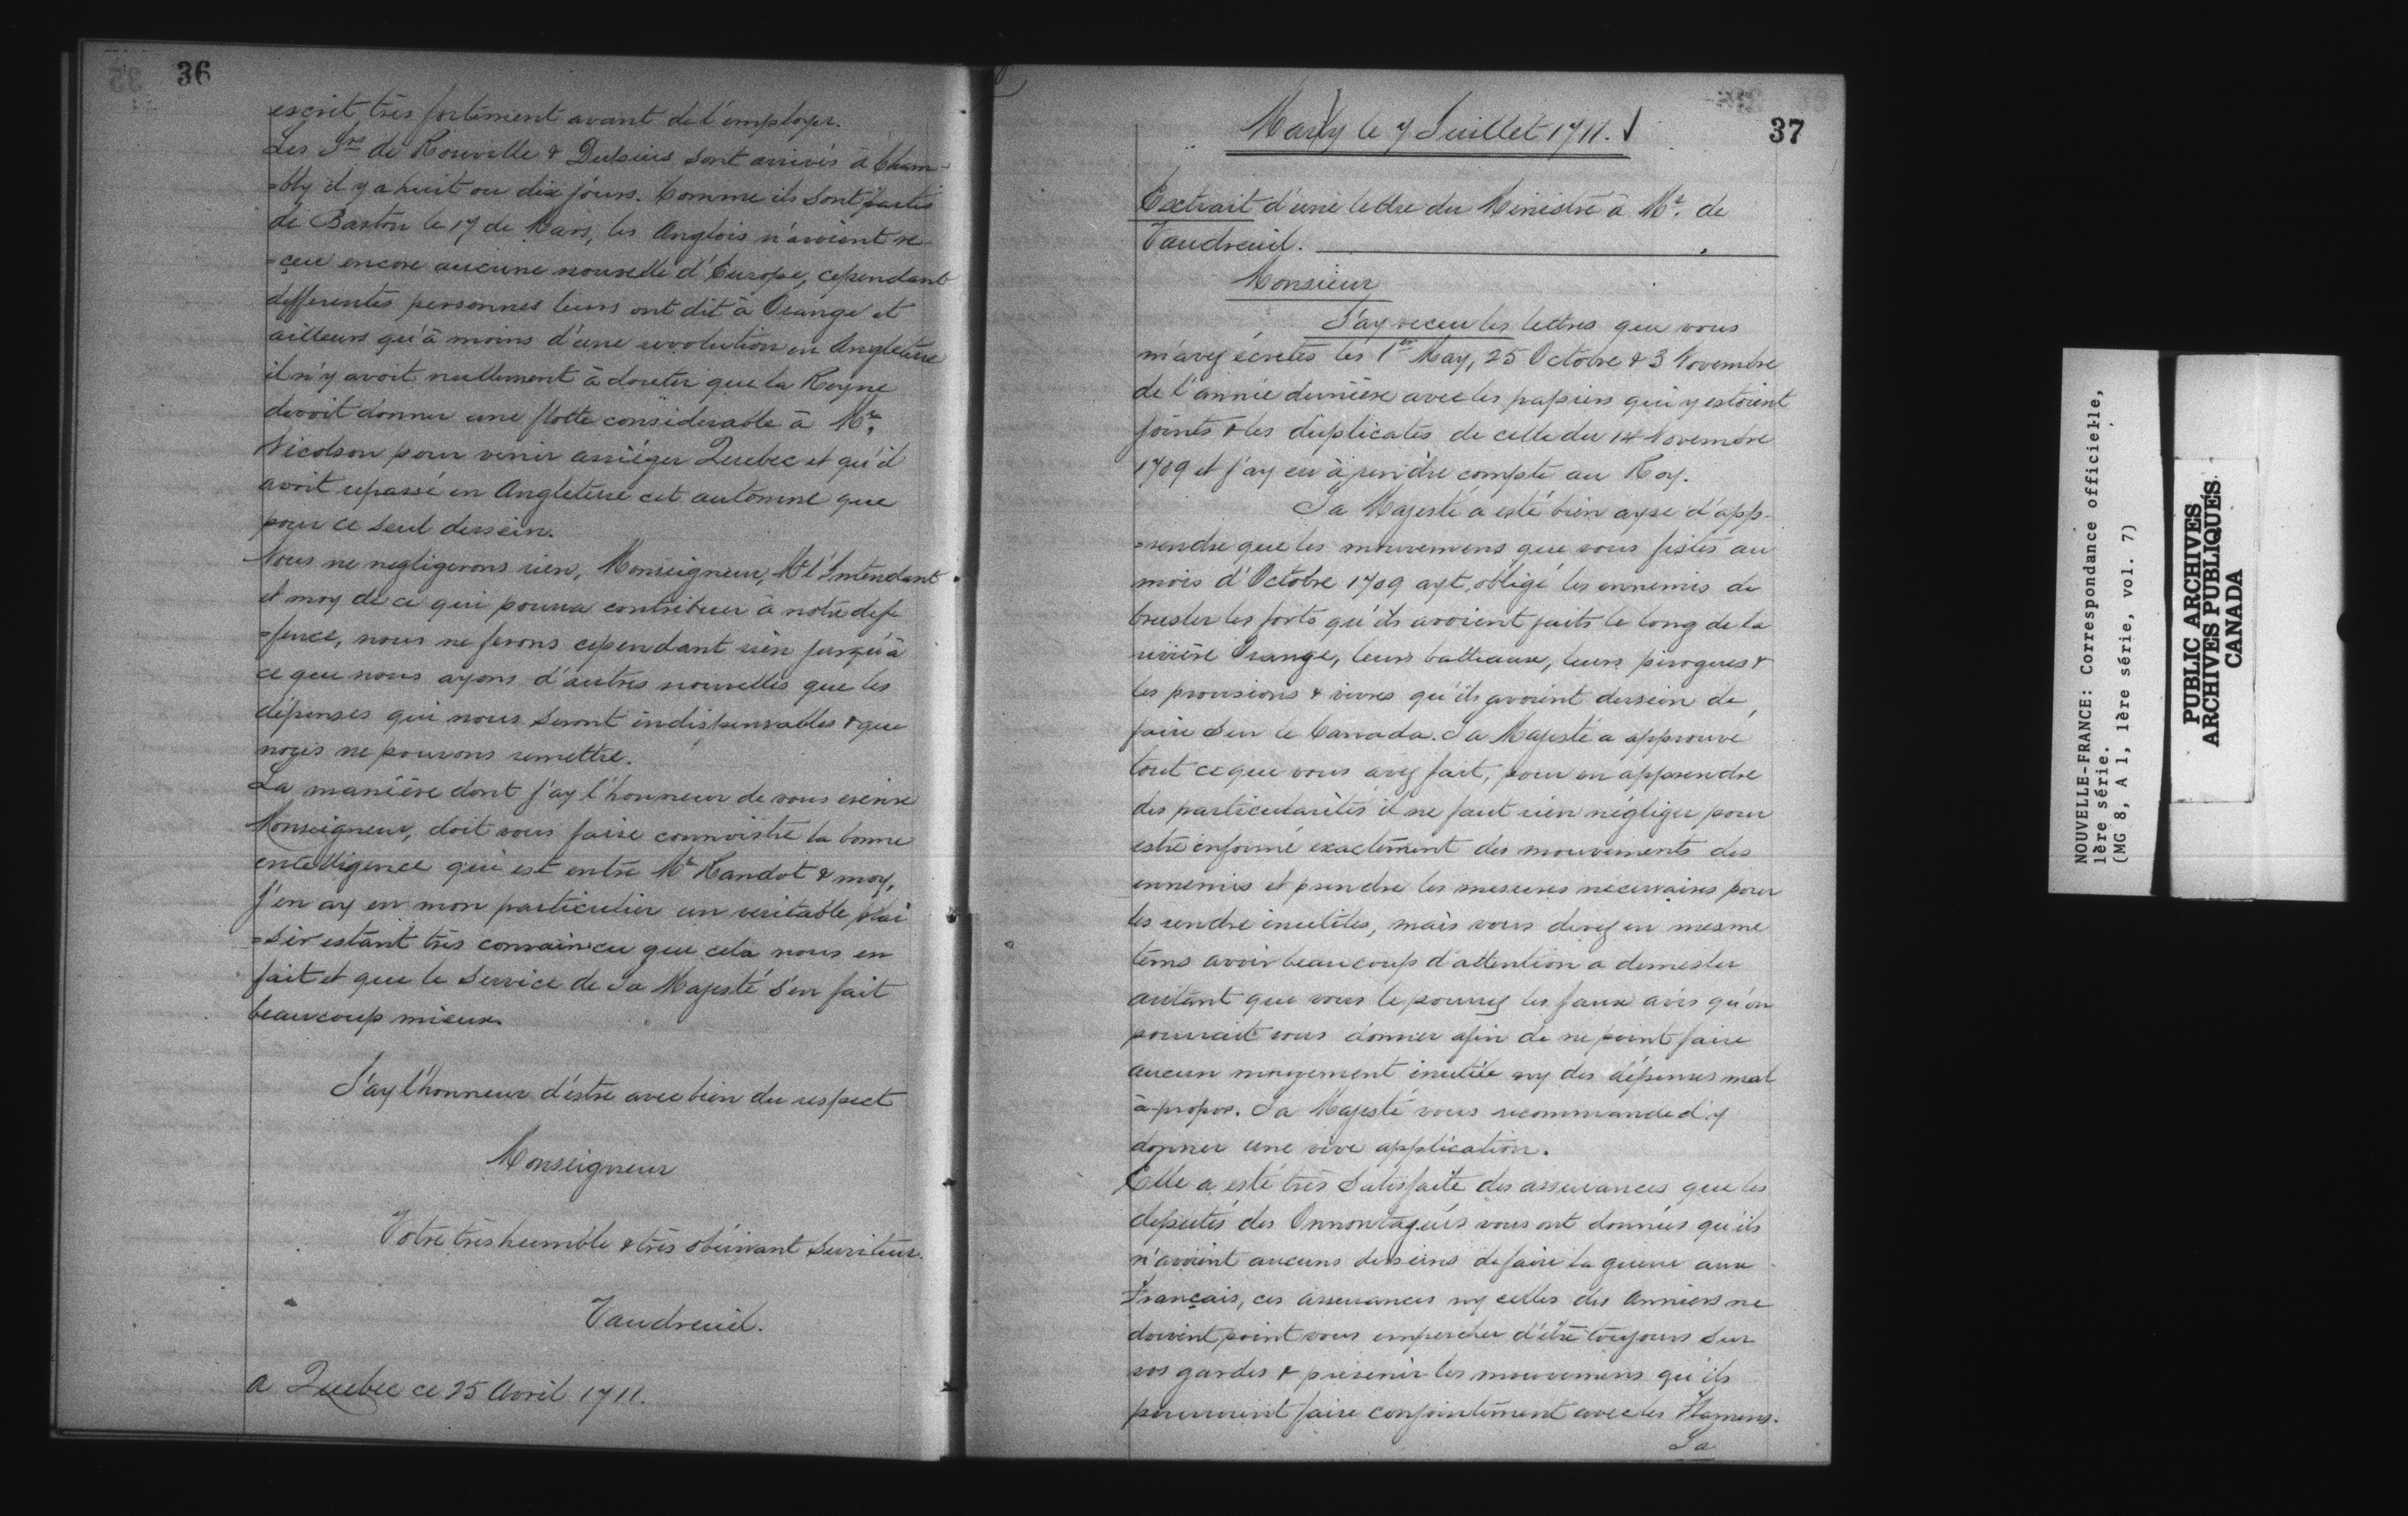 36
escrit très fortement avant de l'employer.
Les Srs de Rouville & Dupuis sont arrivés à Cham-
=bly il y a huit ou dix jours. Comme ils sont partis
de Baston le 17 de Mars, les Anglois n'avoient re-
=çeu encore aucune nouvelle d'Europe, cependant
differentes personnes leurs ont dit à Orange et
ailleurs qu'à moins d'une revolution en Angleterre
il n'y avoit nullement à douter que la Reyne
devoit donner une flotte considerable à Mr.
Nicolson pour venir assiéger Quebec et qu'il
avoit repassé en Angleterre cet automne que
pour ce seul dessein.
Nous ne negligerons rien, Monseigneur, Mr l'Intendant
et moy de ce qui pourra contribuer à notre def
=fence, nous ne ferons cependant rien jusqu'à
ce que nous ayons d'autres nouvelles que les
dépenses qui nous seront indispensables & que
nous ne pouvons remettre.
La manière dont j'ay l'honneur de vous escrire
Monseigneur, doit vous faire connoistre la bonne
entelligence qui est entre Mr Raudot & moy,
j'en ay en mon particulier un veritable plai
=sir estant très convaincu que cela nous en
fait et que le Service de Sa Majesté s'en fait
beaucoup mieux.
J'ay l'honneur d'éstre avec bien du respect
Monseigneur
Votre très humble & très obéissant Serviteur.
Vaudreuil.
a Quebec ce 25 Avril 1711.
37
Marly le 7 Juillet 1711.
Extrait d'une lettre du Ministre à Mr. de
Vaudreuil.
Monsieur
J'ay receu les lettres que vous
m'avez écrites les 1er May, 25 Octobre & 3 Novembre
de l'année dernière avec les papiers qui y estoient
joints & les duplicates de celle du 14 Novembre
1709 et j'ay eu à rendre compte au Roy.
Sa Majesté a esté bien ayse d'app-
=rendre que les mouvemens que vous fistes au
mois d'Octobre 1709 ayt obligé les ennemis de
brusler les forts qu'ils avoient faits le long de la
rivière Orange, leurs batteaux, leurs pirogues &
les provisions & vivres qu'ils avoient dessein de
faire sur le Canada. Sa Majesté a approuvé
tout ce que vous avez fait, pour en apprendre
des particularités il ne faut rien négliger pour
estre informé exactement des mouvements des
ennemis et prendre les mesures nécessaires pour
les rendre inutiles, mais vous devez en mesme
tems avoir beaucoup d'attention a demesler
autant que vous le pourrez les faux avis qu'on
pourrait vous donner afin de ne point faire
aucun mouvement inutile ny des dépenses mal
à-propos. Sa Majesté vous recommande d'y
donner une vive application.
Elle a esté très satisfaite des asseurances que les
députés des Onnontagués vous ont données qu'ils
n'avoient aucuns desseins de faire la guerre aux
Français, ces asseurances ny celles des Anniers ne
doivent point vous empescher d'être toujours sur
vos gardes & prévenir les mouvemens qu'ils
pourroient faire conjointement avec les Flamens.
Sa
NOUVELLE-FRANCE: Correspondance officielle,
1ère série.
(MG 8, A 1, 1ère série, vol. 7)
PUBLIC ARCHIVES
ARCHIVES PUBLIQUES
CANADA